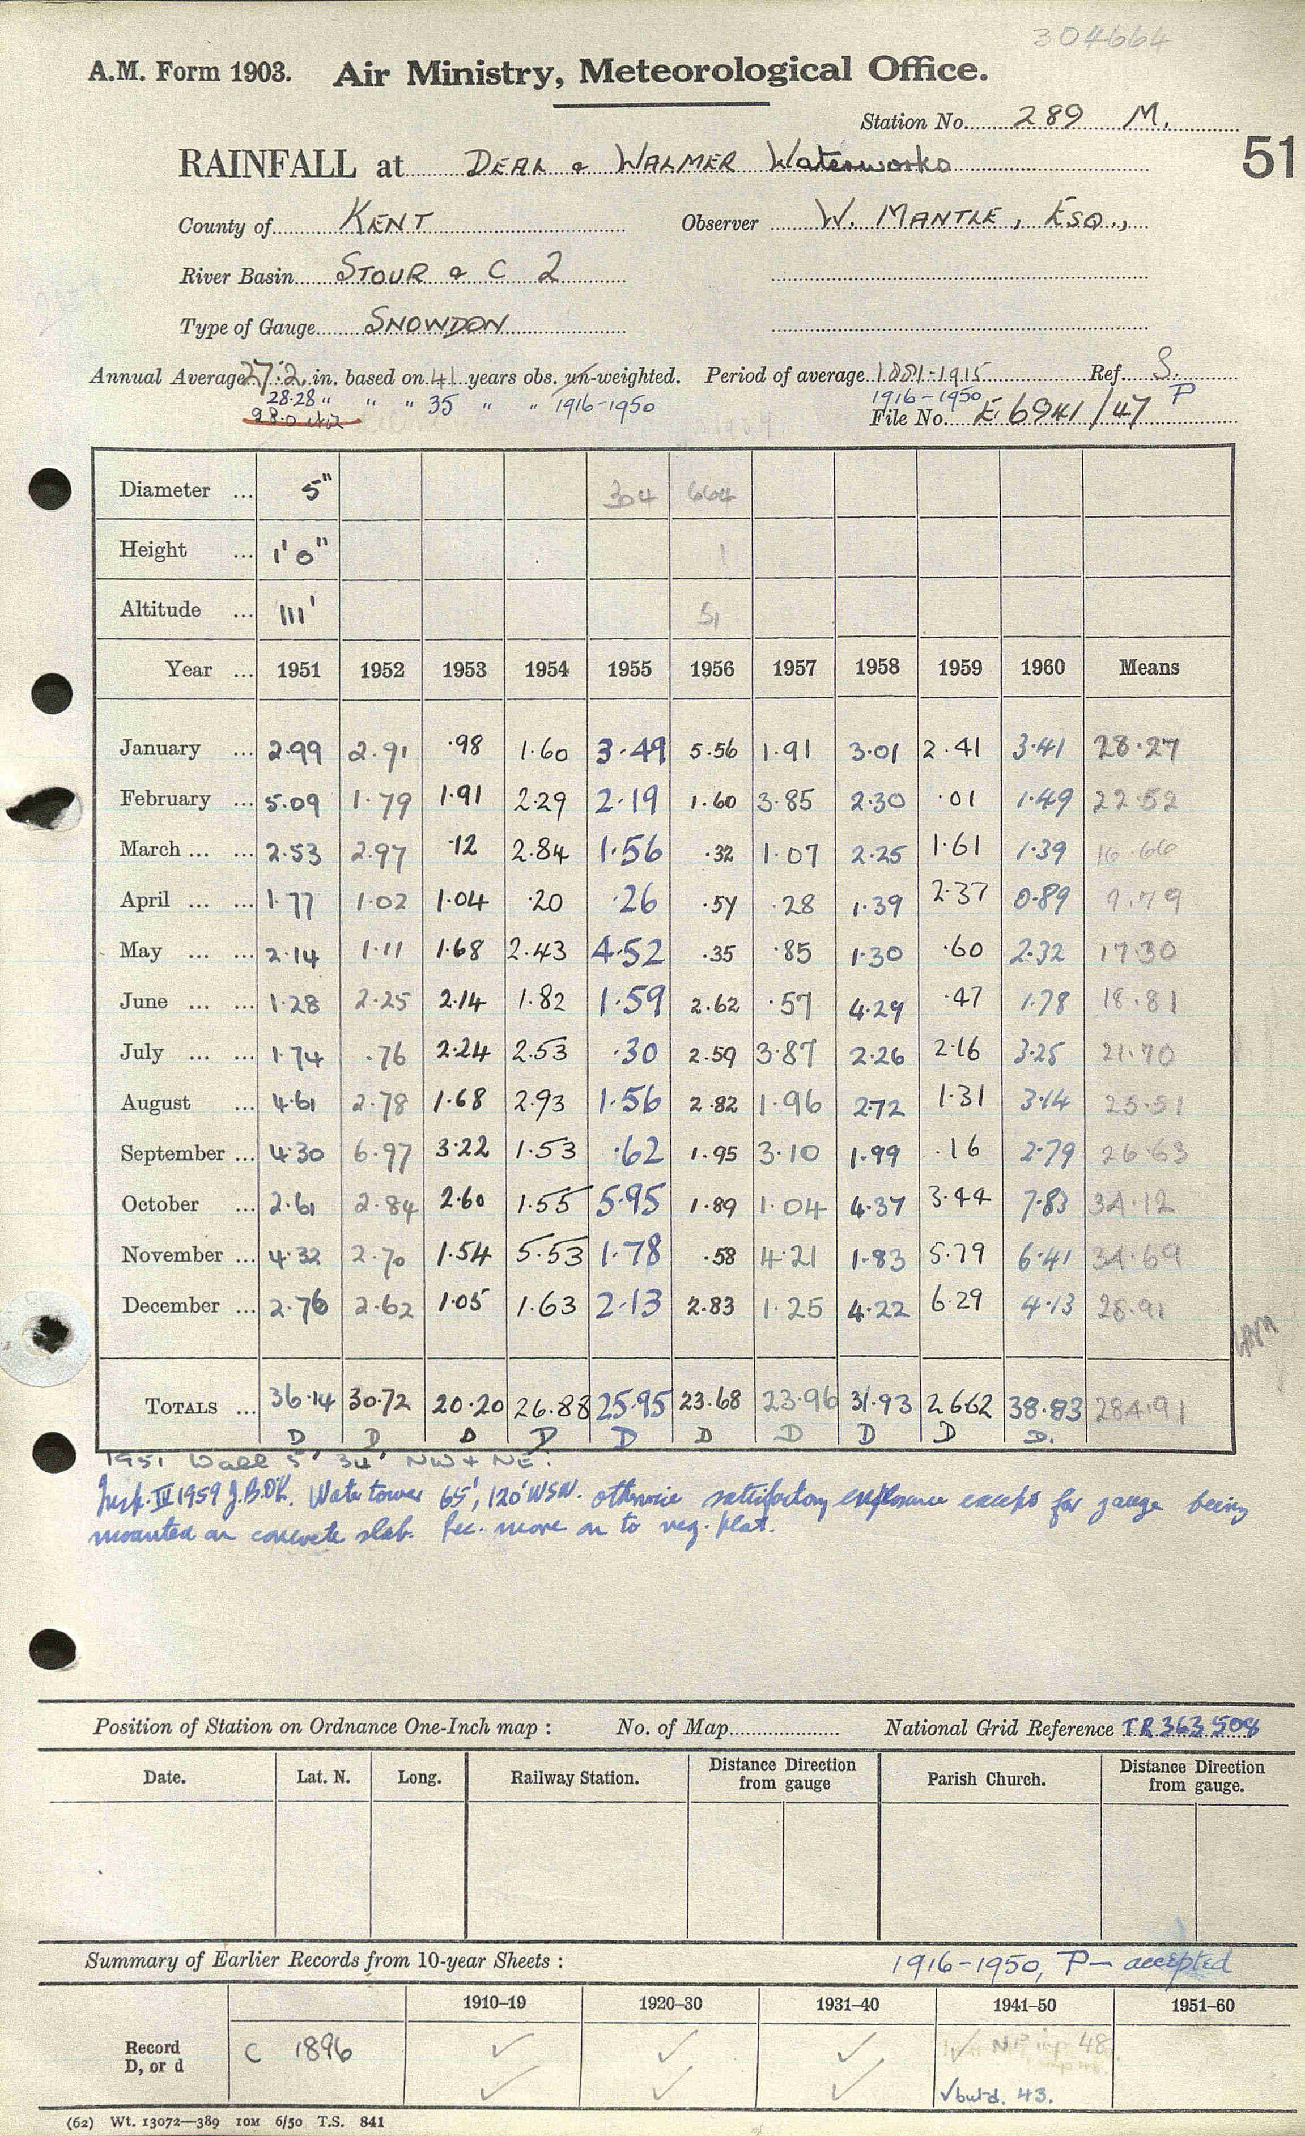 304664
A.M. Form 1903. Air Ministry, Meteorological Office.
Station No. 289 M.
RAINFALL at DEAL & WALMER Waterworks
51
County of KENT Observer W. MANTLE, ESQ.,
River Basin STOUR & C 2
Type of Gauge SNOWDON
Annual Average 27.2 in. based on 41 years obs. un-weighted. Period of average 1881-1915 Ref. S.
28.28 " " " 35 " " 1916-1950 1916-1950 P
File No. E 6941/47
Diameter ... 5" 304 664
Height ... 1' 0" 1
Altitude ... 111' 51
Year ... 1951 1952 1953 1954 1955 1956 1957 1958 1959 1960 Means
January ... 2.99 2.91 .98 1.60 3.49 5.56 1.91 3.01 2.41 3.41 28.27
February ... 5.09 1.79 1.91 2.29 2.19 1.60 3.85 2.30 .01 1.49 22.52
March ... ... 2.53 2.97 .12 2.84 1.56 .32 1.07 2.25 1.61 1.39 16.66
April ... ... 1.77 1.02 1.04 .20 .26 .57 .28 1.39 2.37 0.89 9.79
May ... ... 2.14 1.11 1.68 2.43 4.52 .35 .85 1.30 .60 2.32 17.30
June ... ... 1.28 2.25 2.14 1.82 1.59 2.62 .57 4.29 .47 1.78 18.81
July ... ... 1.74 .76 2.24 2.53 .30 2.59 3.87 2.26 2.16 3.25 21.70
August ... 4.61 2.78 1.68 2.93 1.56 2.82 1.96 2.72 1.31 3.14 25.51
September ... 4.30 6.97 3.22 1.53 .62 1.95 3.10 1.99 .16 2.79 26.63
October ... 2.61 2.84 2.60 1.55 5.95 1.89 1.04 4.37 3.44 7.83 34.12
November ... 4.32 2.70 1.54 5.53 1.78 .58 4.21 1.83 5.79 6.41 34.69
December ... 2.76 2.62 1.05 1.63 2.13 2.83 1.25 4.22 6.29 4.13 28.91
TOTALS ... 36.14 30.72 20.20 26.88 25.95 23.68 23.96 31.93 26.62 38.83 284.91
D D D D D D D D D D.
1951 Wall 5' 34' NW & NE.
Insp. IV 1959 J.B.O'K. Water tower 65', 120' WSW. otherwise satisfactory exposure except for gauge being
mounted on concrete slab. Rec. move on to veg. plat.
Position of Station on Ordnance One-Inch map : No. of Map National Grid Reference TR 363 508
Date. Lat. N. Long. Railway Station. Distance Direction from gauge Parish Church. Distance Direction from gauge.
Summary of Earlier Records from 10-year Sheets : 1916-1950, P- accepted
1910–19 1920–30 1931–40 1941–50 1951–60
Record D, or d C 1896 ✓ ✓ ✓ ✓
✓ ✓ ✓ ✓ but d. 43.
(62) Wt. 13072—389 10M 6/50 T.S. 841